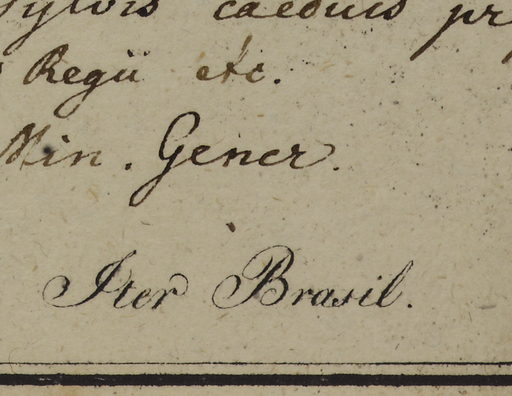 Sylvis caeduis
Regii etc.
Min. Gener.
Iter Brasil.